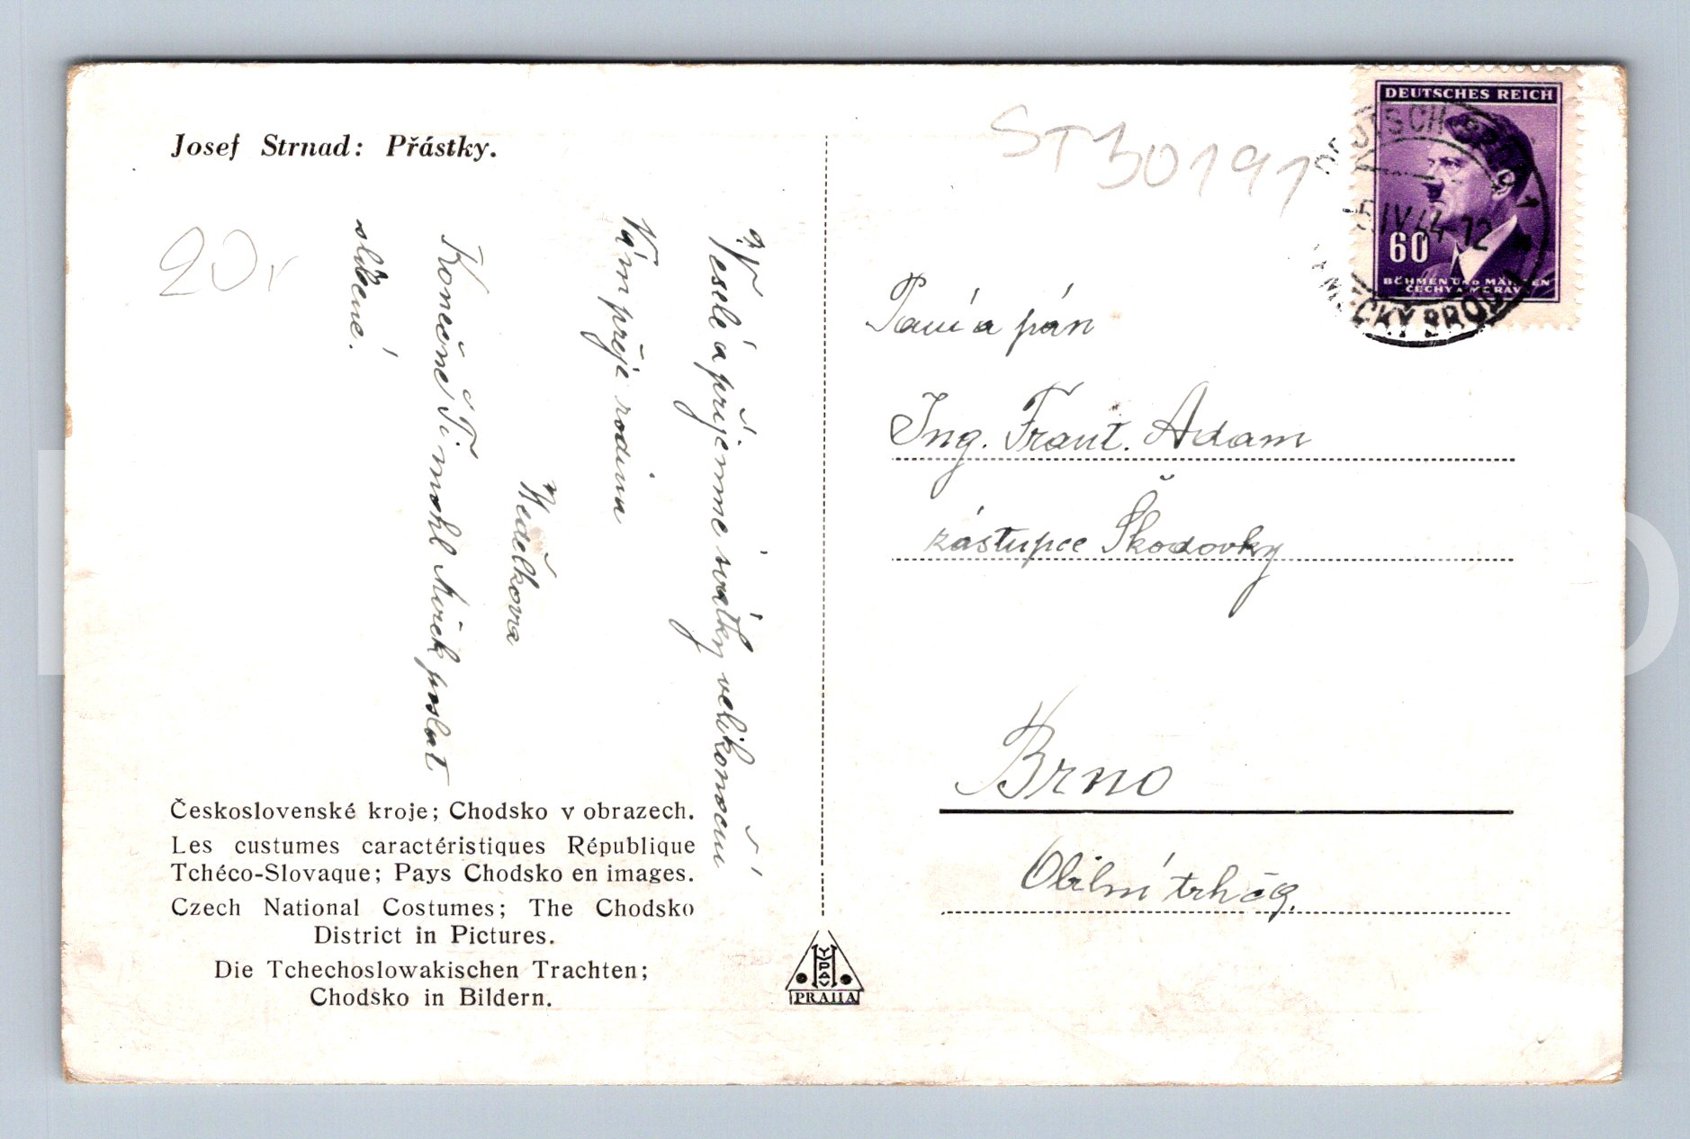 Josef Strnad: Přástky.
20,-
ST30191
DEUTSCHES REICH
60
BÖHMEN UND MÄHREN
ČECHY A MORAVA
DEUTSCH BROD 1
5.IV.44-12
NĚMECKÝ BROD 1
Veselé a příjemné svátky velikonoční
Vám přeje rodina
Nedělkova
Konečně Ti mohl poslat
slíbené.
Paní a pán
Ing. Frant. Adam
zástupce Škodovky
Brno
Obilní trh
Československé kroje; Chodsko v obrazech.
Les custumes caractéristiques République
Tchéco-Slovaque; Pays Chodsko en images.
Czech National Costumes; The Chodsko
District in Pictures.
Die Tchechoslowakischen Trachten;
Chodsko in Bildern.
PRAHA